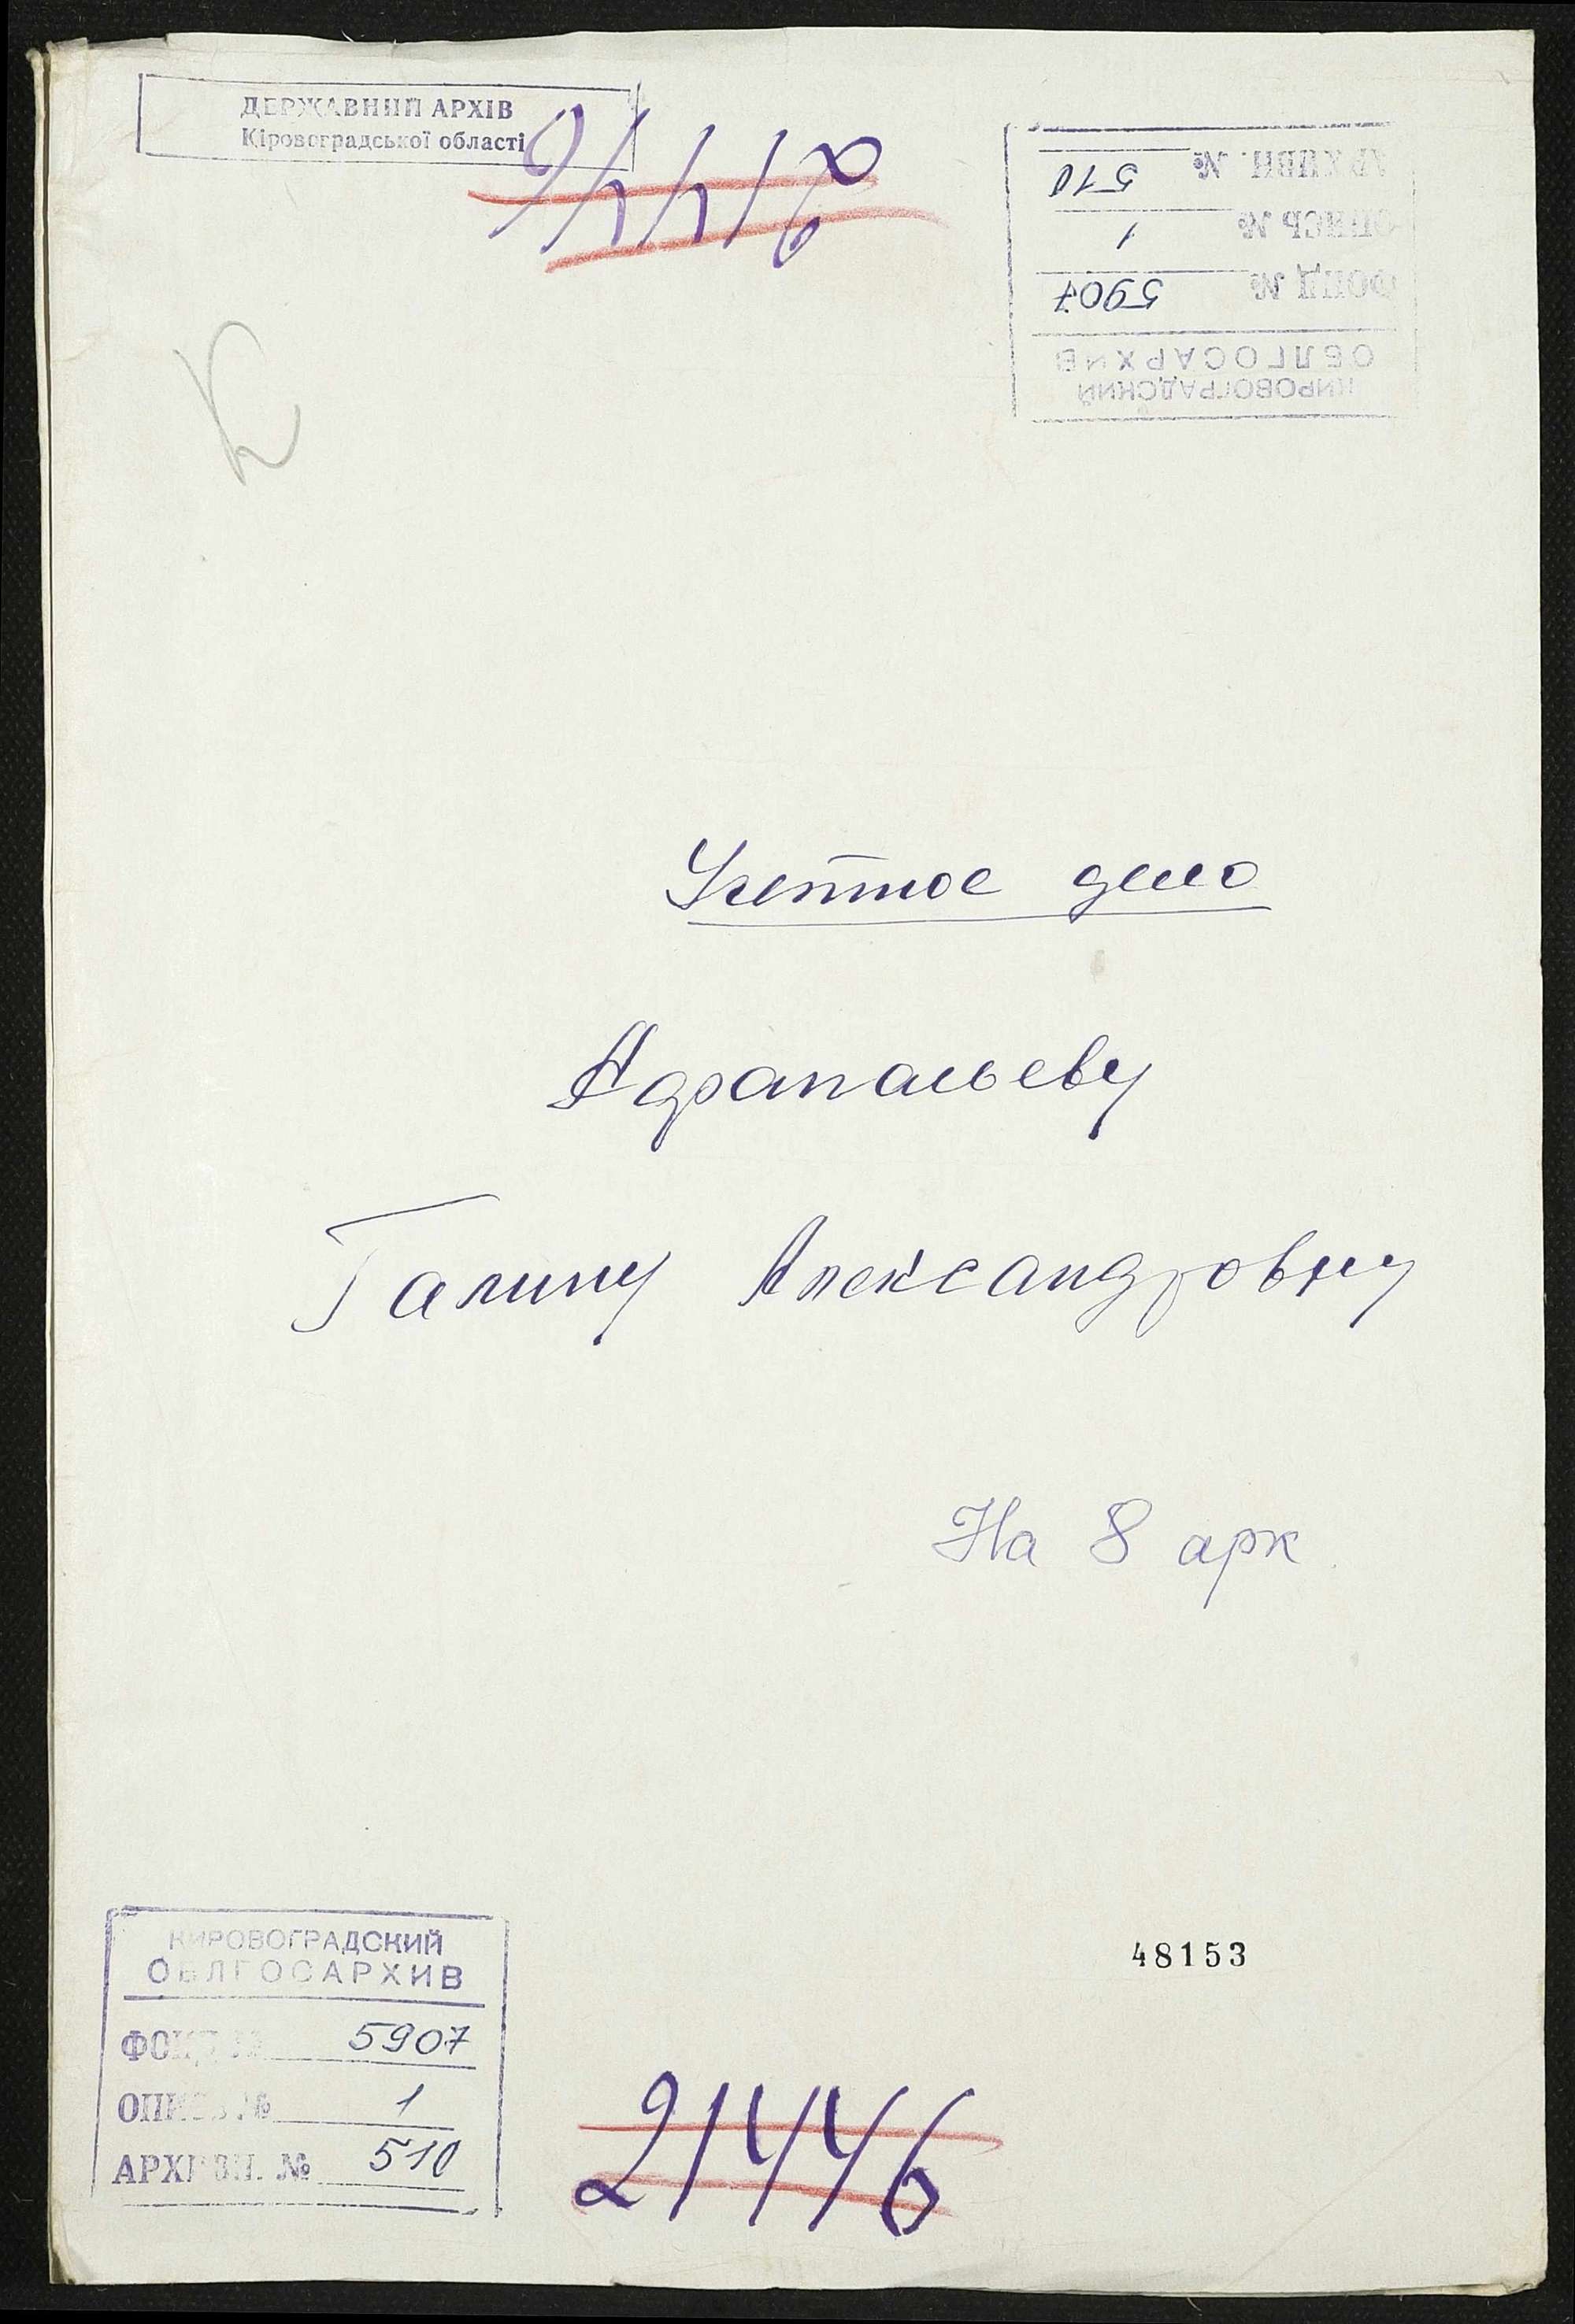 ДЕРЖАВНИЙ АРХІВ
Кіровоградської області
21446
АРХИВН. № 510
ОПИСЬ № 1
ФОНД № 5907
ОБЛГОСАРХИВ
КИРОВОГРАДСКИЙ
К
Учетное дело
Адрапальеву
Галину Александровну
На 8 арк.
48153
КИРОВОГРАДСКИЙ
ОБЛГОСАРХИВ
ФОНД № 5907
ОПИСЬ № 1
АРХИВН. № 510
21446